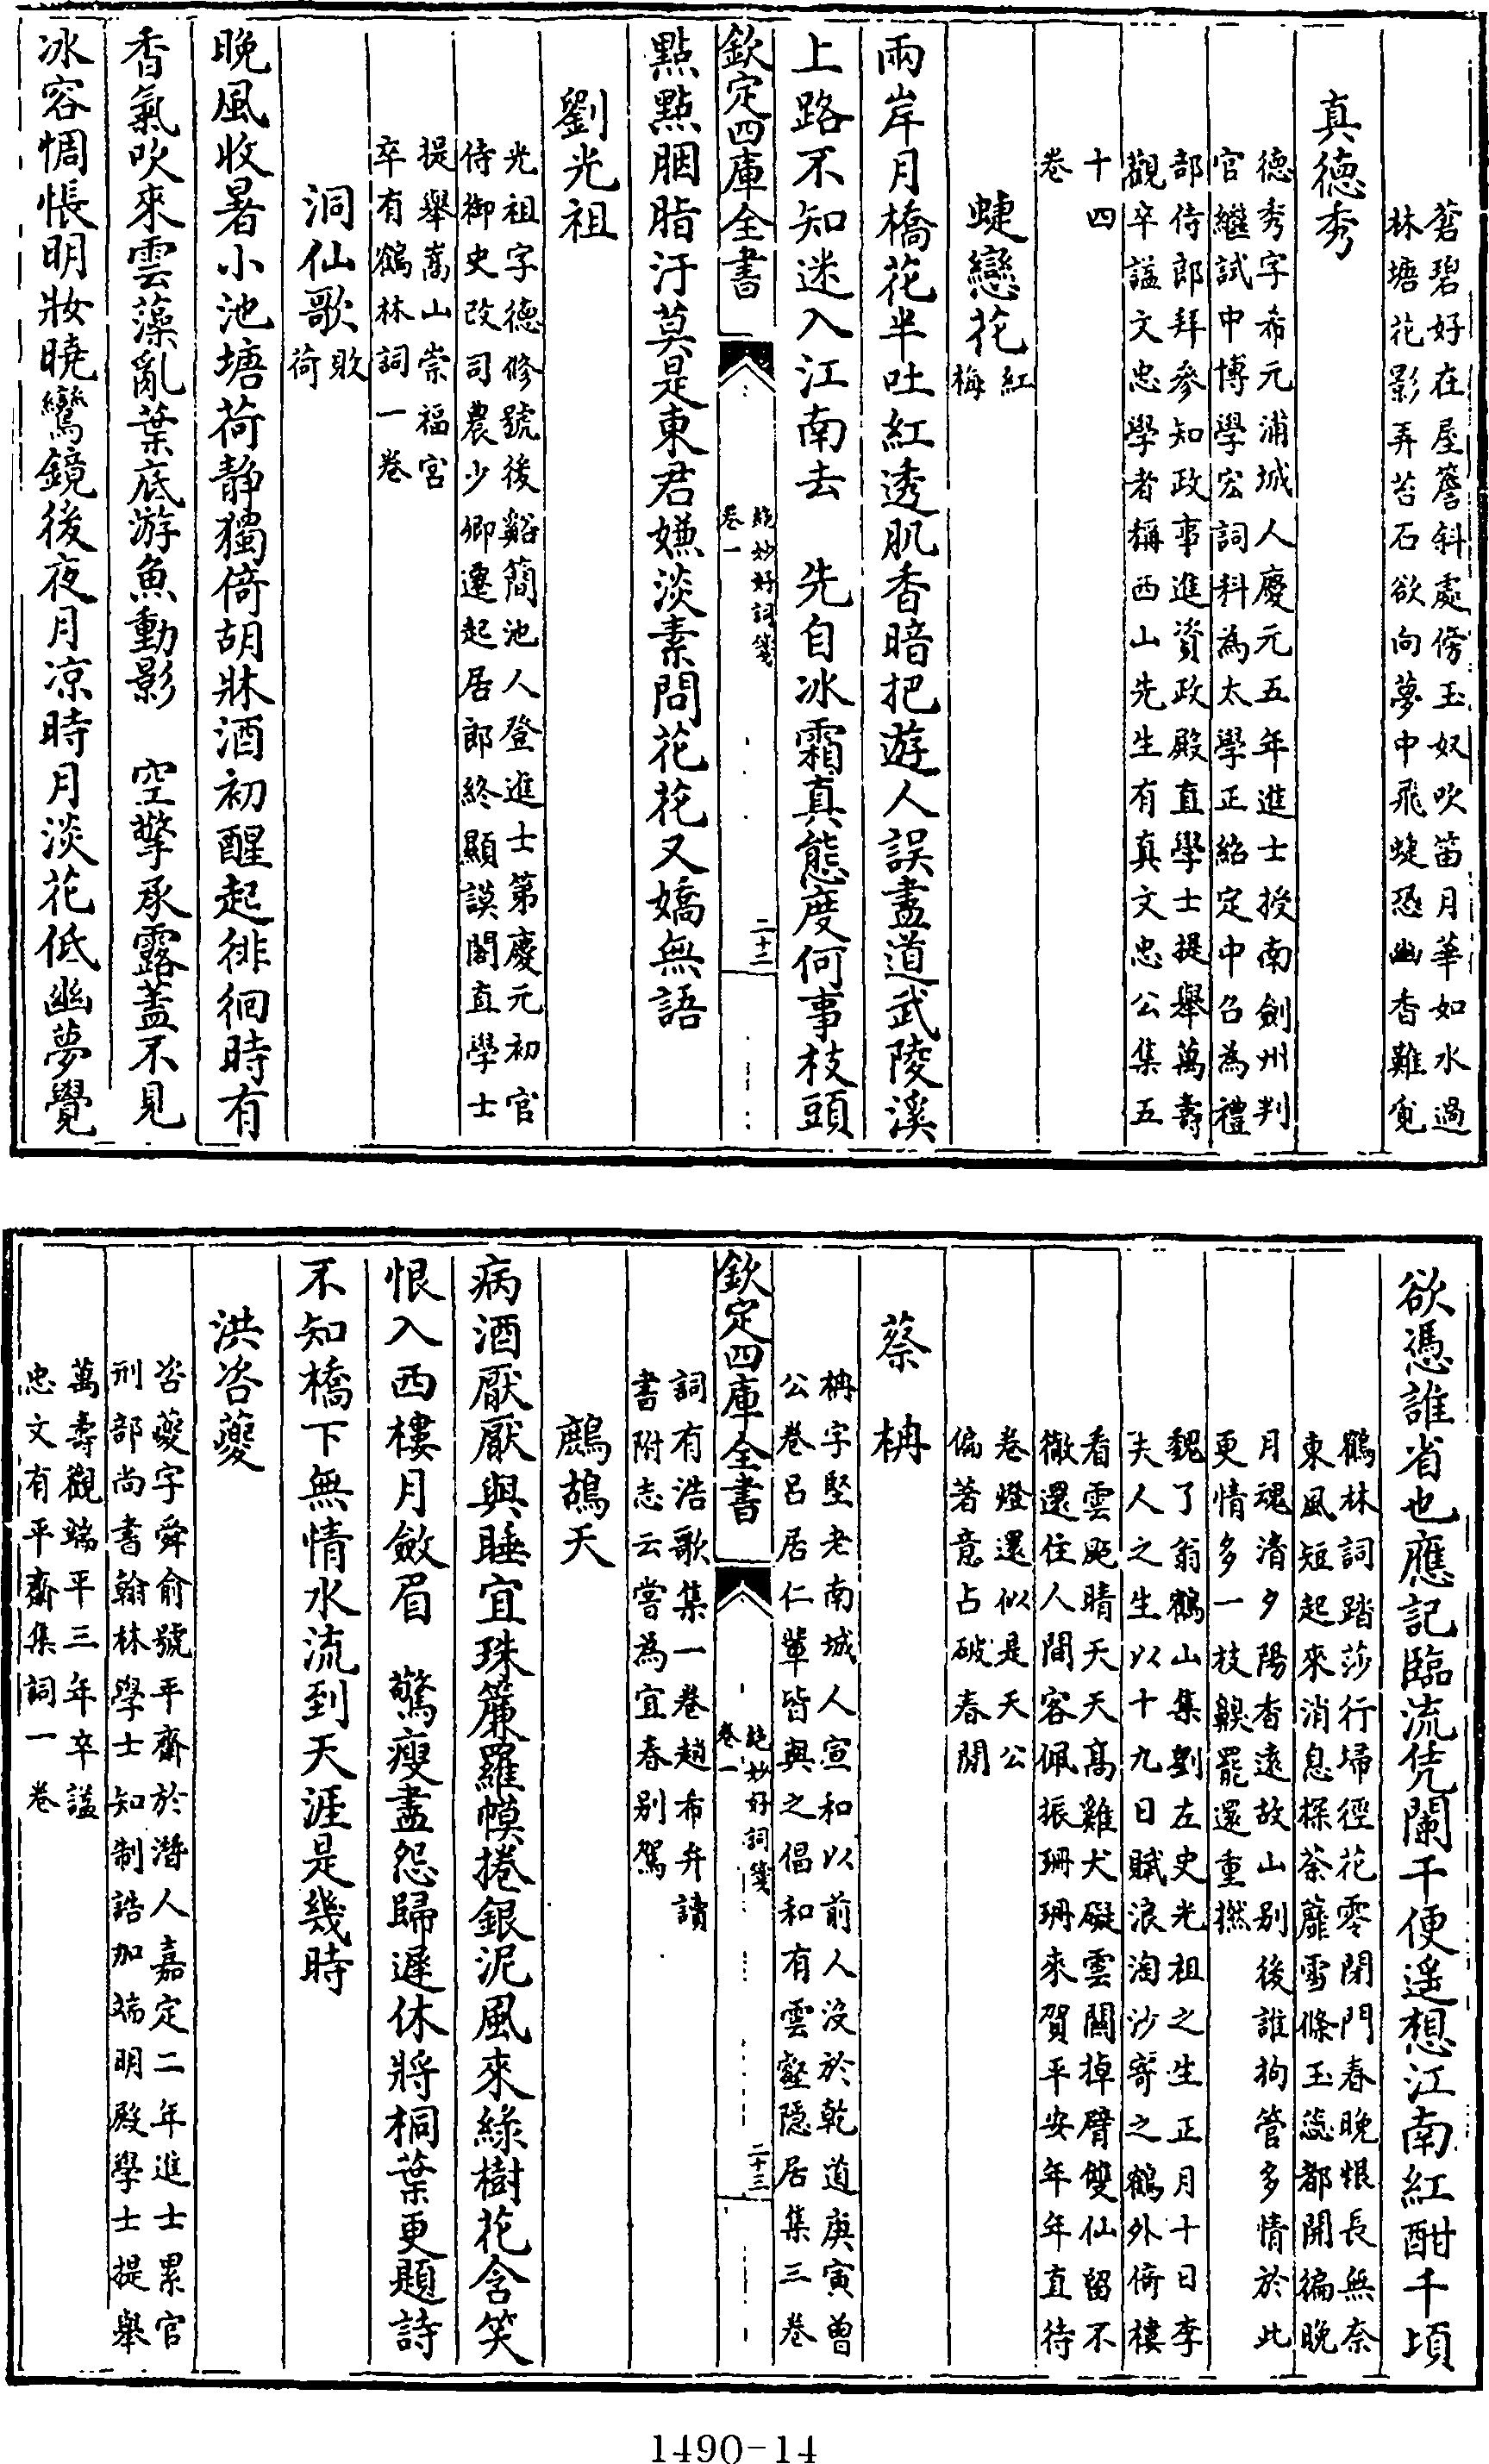 蒼碧好在屋簷斜處傍玉奴吹笛月華如水過
林塘花影弄苔石欲向夢中飛蜨恐幽香難覓
真德秀
德秀字希元浦城人慶元五年進士授南劍州判
官繼試中博學宏詞科為太學正紹定中召為禮
部侍郎拜參知政事進資政殿直學士提舉萬壽
觀卒諡文忠學者稱西山先生有真文忠公集五
十四
卷
蜨戀花
紅
梅
兩岸月橋花半吐紅透肌香暗把遊人誤盡道武陵溪
上路不知迷入江南去　先自冰霜真態度何事枝頭
欽定四庫全書
絶妙好詞箋
卷一
二十二
點點胭脂汙莫是東君嫌淡素問花花又嬌無語
劉光祖
光祖字德修號後谿簡池人登進士第慶元初官
侍御史改司農少卿遷起居郎終顯謨閣直學士
提舉嵩山崇福宫
卒有鶴林詞一卷
洞仙歌
敗
荷
晚風收暑小池塘荷静獨倚胡牀酒初醒起徘徊時有
香氣吹來雲藻亂葉底游魚動影　空擎承露蓋不見
冰容惆悵明妝曉鸞鏡後夜月凉時月淡花低幽夢覺
欲憑誰省也應記臨流凭闌干便遥想江南紅酣千頃
鶴林詞踏莎行埽徑花零閉門春晚恨長無奈
東風短起來消息探荼蘼雪條玉蕊都開徧晚
月魂清夕陽香遠故山别後誰拘管多情於此
更情多一枝齅罷還重撚
魏了翁鶴山集劉左史光祖之生正月十日李
夫人之生以十九日賦浪淘沙寄之鶴外倚樓
看雲颭晴天天高雞犬礙雲關掉臂雙仙留不
徹還住人間客佩振珊珊來賀平安年年直待
卷燈還似是天公
偏著意占破春開
蔡柟
柟字堅老南城人宣和以前人没於乾道庚寅曾
公卷吕居仁輩皆與之倡和有雲壑隱居集三卷
欽定四庫全書
絶妙好詞箋
卷一
二十三
詞有浩歌集一卷趙希弁讀
書附志云嘗為宜春别駕
鷓鴣天
病酒厭厭與睡宜珠簾羅幙捲銀泥風來綠樹花含笑
恨入西樓月斂眉　驚瘦盡怨歸遲休將桐葉更題詩
不知橋下無情水流到天涯是幾時
洪咨夔
咨夔字舜俞號平齋於潛人嘉定二年進士累官
刑部尚書翰林學士知制誥加端明殿學士提舉
萬壽觀端平三年卒諡
忠文有平齋集詞一卷
1490-14